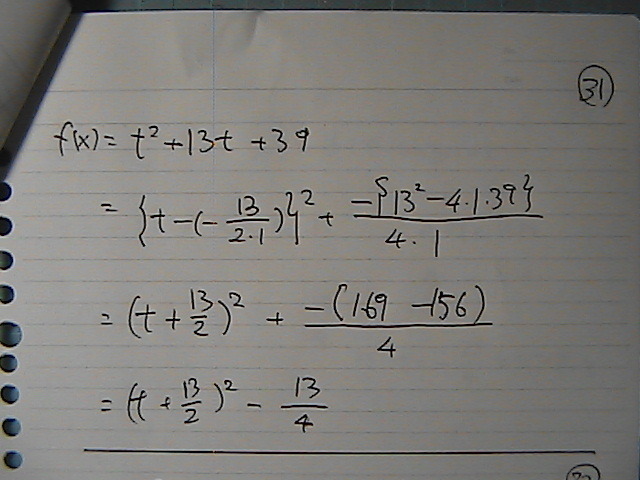 (31)
f(x) = t² + 13t + 39
= {t - (- 13/2·1)}² + -{13² - 4·1·39}/4·1
= (t + 13/2)² + -(169 - 156)/4
= (t + 13/2)² - 13/4